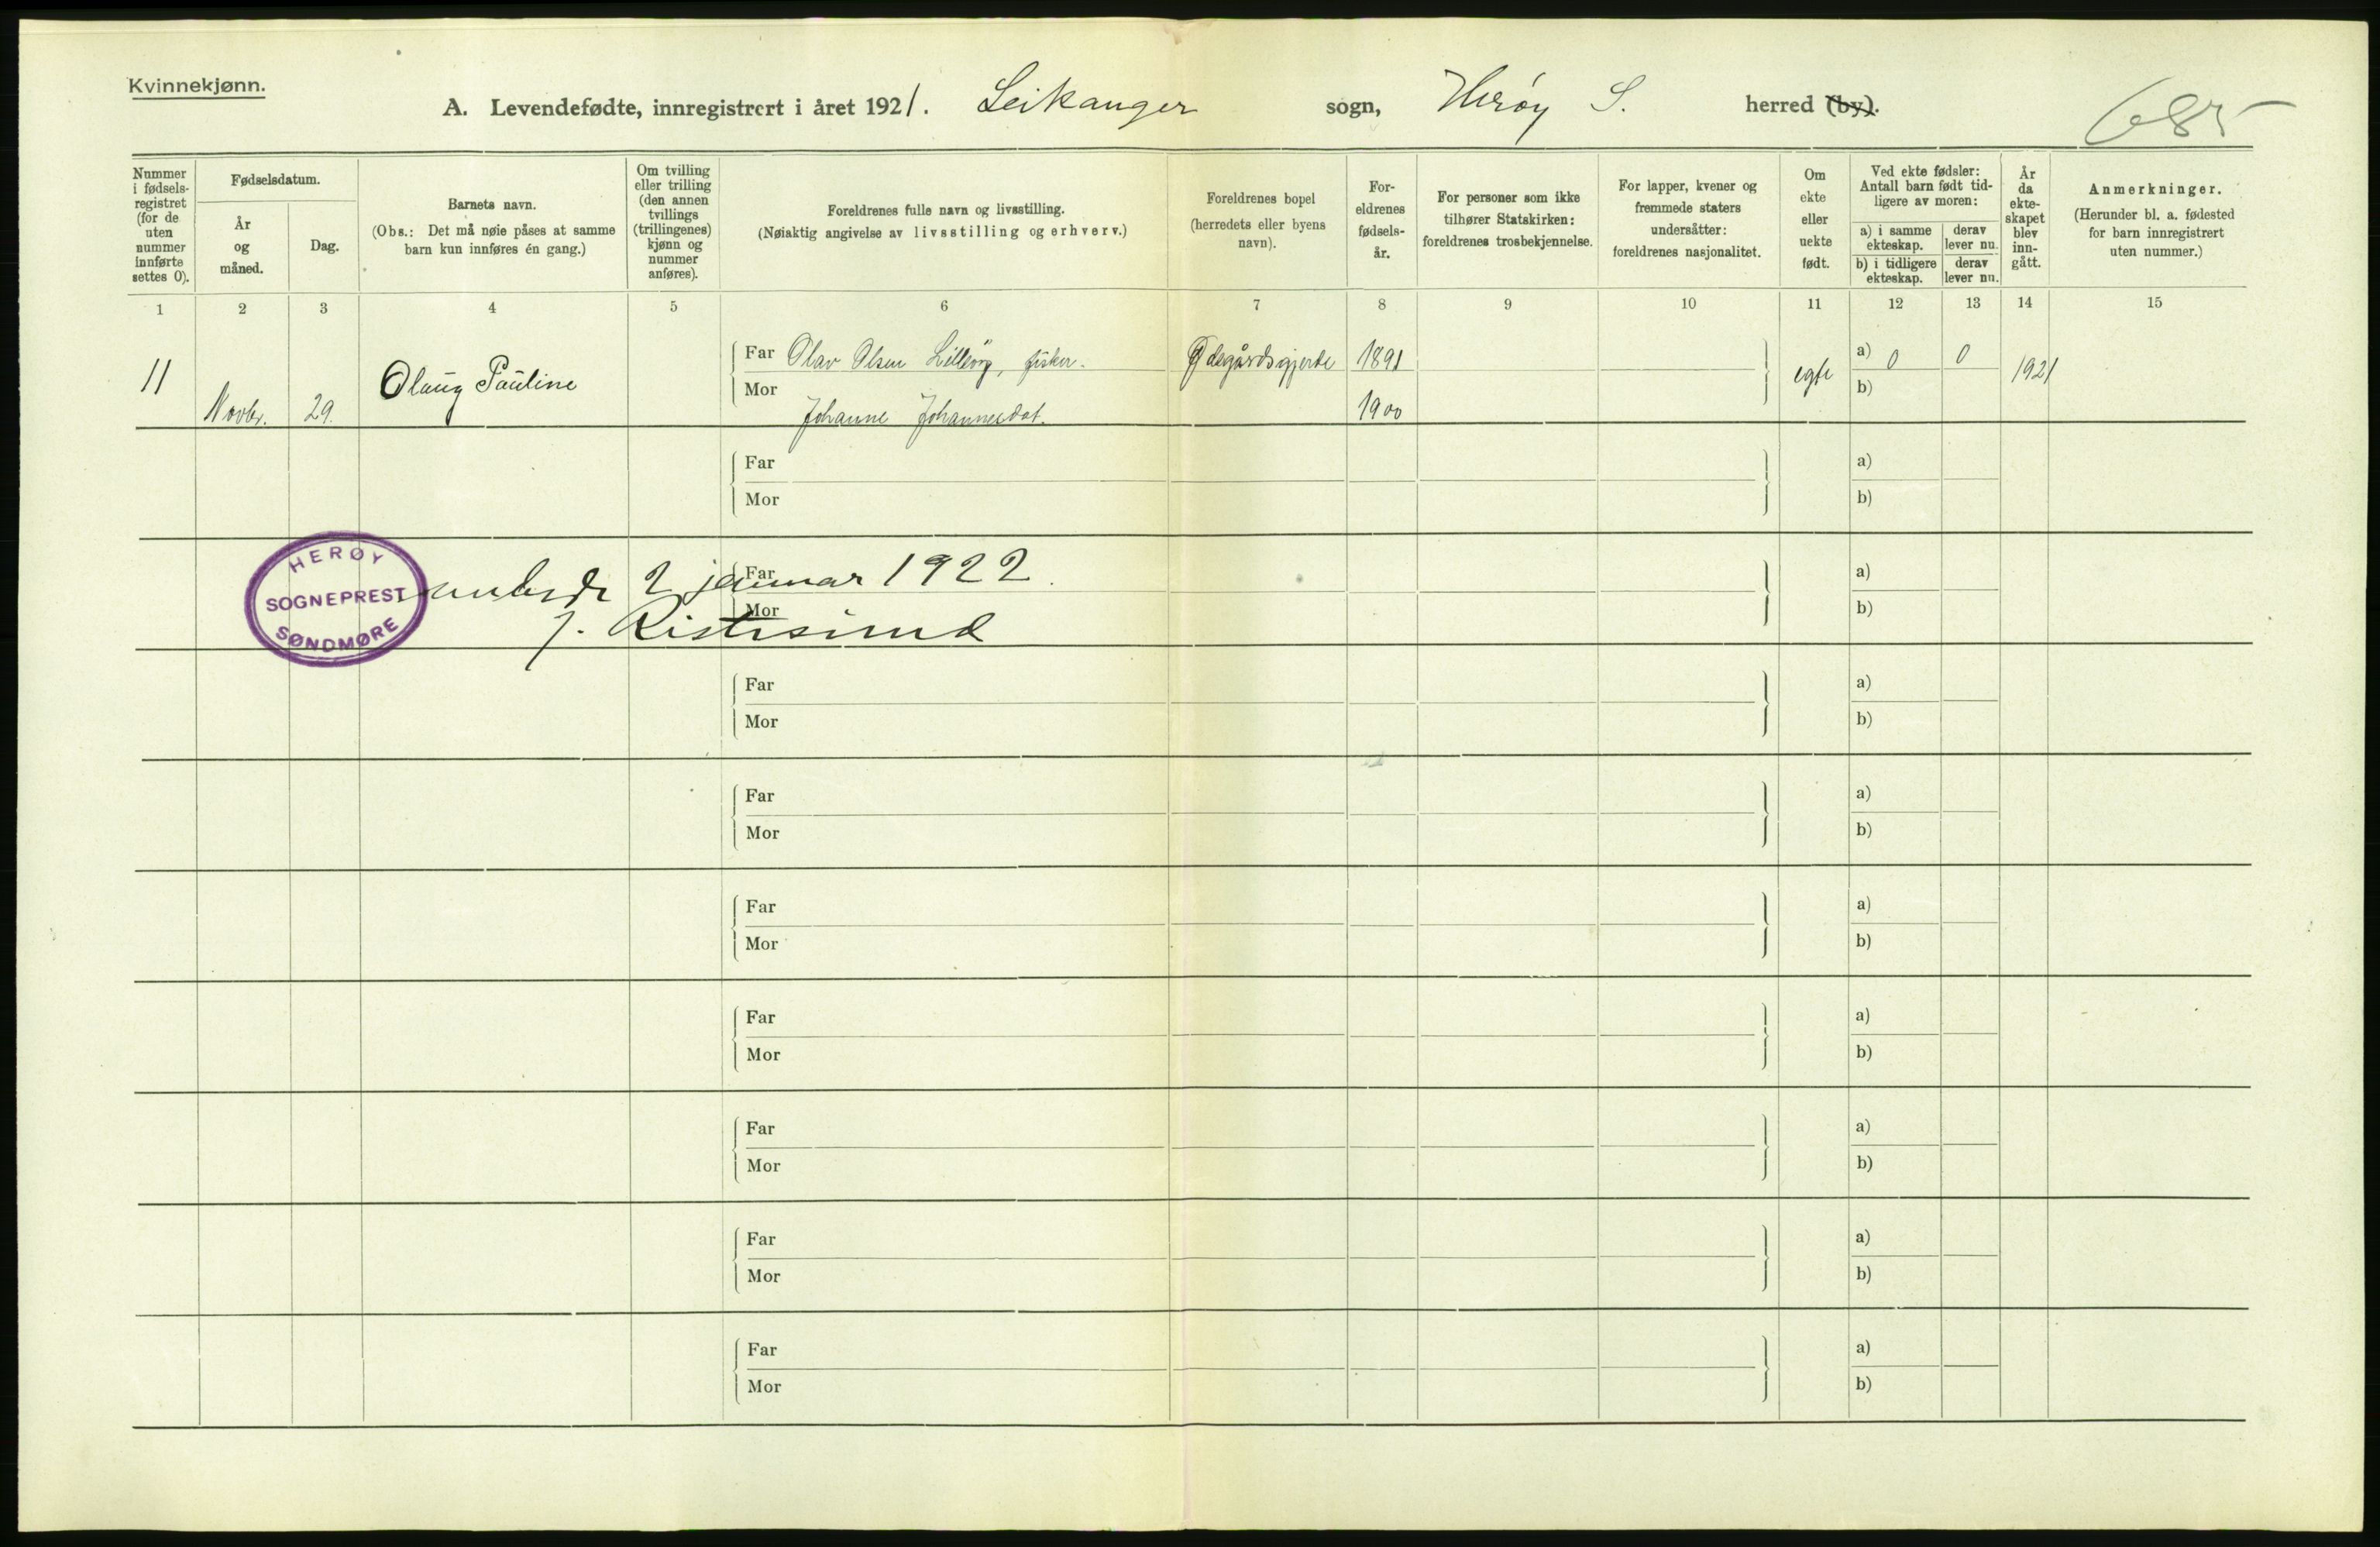 Kvinnekjønn.
A. Levendefødte, innregistrert i året 1921. Leikanger sogn, Herøy S. herred (by).
685
Nummer i fødsels-registret (for de uten nummer innførte settes 0).
Fødselsdatum.
År og måned.
Dag.
Barnets navn.
(Obs.: Det må nøie påses at samme barn kun innføres én gang.)
Om tvilling eller trilling (den annen tvillings (trillingenes) kjønn og nummer anføres).
Foreldrenes fulle navn og livsstilling.
(Nøiaktig angivelse av livsstilling og erhverv.)
Foreldrenes bopel (herredets eller byens navn).
For-eldrenes fødsels-år.
For personer som ikke tilhører Statskirken: foreldrenes trosbekjennelse.
For lapper, kvener og fremmede staters undersåtter: foreldrenes nasjonalitet.
Om ekte eller uekte født.
Ved ekte fødsler: Antall barn født tid-ligere av moren:
a) i samme ekteskap.
derav lever nu.
b) i tidligere ekteskap.
derav lever nu.
År da ekte-skapet blev inn-gått.
Anmerkninger.
(Herunder bl. a. fødested for barn innregistrert uten nummer.)
1 2 3 4 5 6 7 8 9 10 11 12 13 14 15
11 Novbr. 29. Olaug Pauline
Far Olav Olsen fisker. Ødegårdsgjerde 1891 egte a) 0 0 1921
Mor Johanne Johannesdat. 1900 b)
Far a)
Mor b)
HERØY
SOGNEPREST
SØNDMØRE
2 januar 1922.
J. Ristesund
Far a)
Mor b)
Far a)
Mor b)
Far a)
Mor b)
Far a)
Mor b)
Far a)
Mor b)
Far a)
Mor b)
Far a)
Mor b)
Far a)
Mor b)